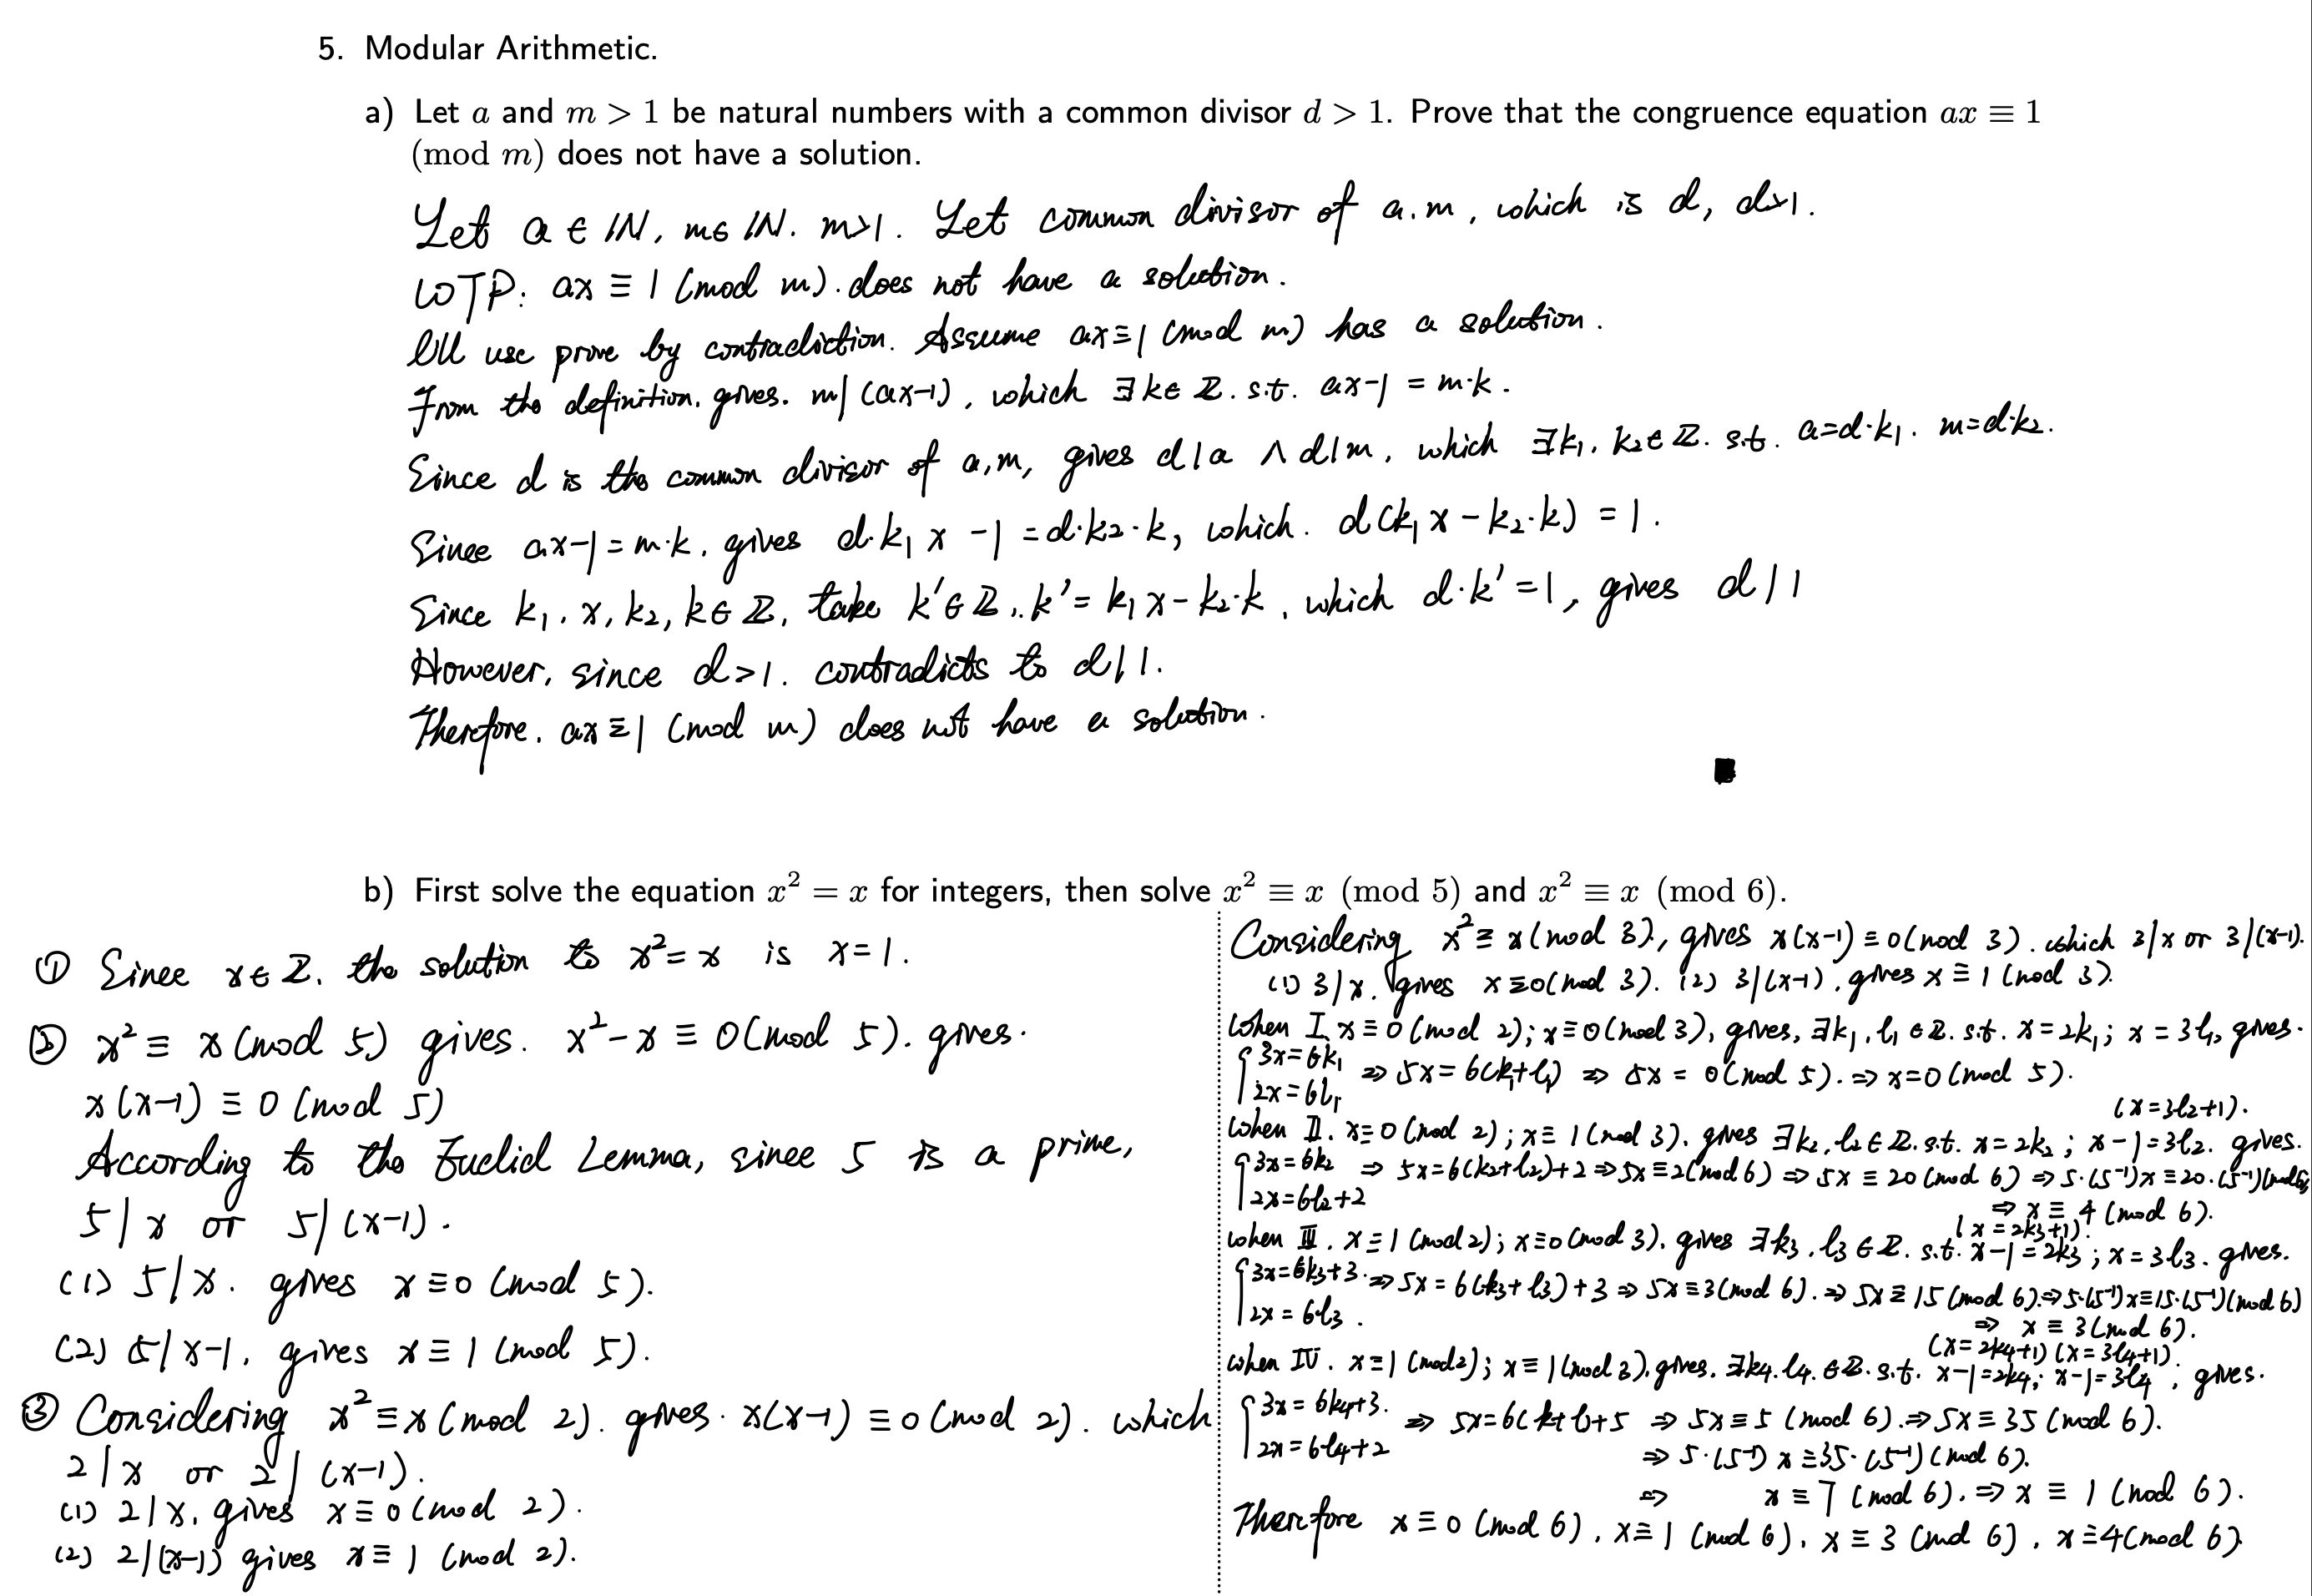 5. Modular Arithmetic.
a) Let a and m > 1 be natural numbers with a common divisor d > 1. Prove that the congruence equation ax ≡ 1
(mod m) does not have a solution.
Let a ∈ IN, m∈ IN. m>1. Let common divisor of a.m, which is d, d>1.
WTP: ax ≡ 1 (mod m). does not have a solution.
I'll use prove by contradiction. Assume ax≡1 (mod m) has a solution.
From the definition, gives. m|(ax-1), which ∃k∈ Z. s.t. ax-1 = m·k.
Since d is the common divisor of a,m, gives d|a ∧ d|m, which ∃k₁, k₂∈ Z. s.t. a=d·k₁. m=d·k₂.
Since ax-1=m·k, gives d·k₁ x -1 = d·k₂·k, which. d(k₁ x - k₂·k) = 1.
Since k₁, x, k₂, k∈ Z, take k'∈ Z, k'= k₁x-k₂·k, which d·k'=1, gives d|1
However, since d>1. contradicts to d|1.
Therefore, ax≡1 (mod m) does not have a solution.
b) First solve the equation x² = x for integers, then solve x² ≡ x (mod 5) and x² ≡ x (mod 6).
① Since x∈ Z, the solution to x²=x is x=1.
② x² ≡ x (mod 5) gives. x²-x ≡ 0 (mod 5). gives.
x(x-1) ≡ 0 (mod 5)
According to the Euclid Lemma, since 5 is a prime,
5|x or 5|(x-1).
(1) 5|x. gives x≡0 (mod 5).
(2) 5|x-1, gives x≡1 (mod 5).
③ Considering x²≡x (mod 2). gives. x(x-1) ≡0 (mod 2). which
2|x or 2|(x-1).
(1) 2|x, gives x≡0 (mod 2).
(2) 2|(x-1) gives x≡1 (mod 2).
Considering x²≡x (mod 3), gives x(x-1)≡0(mod 3). which 3|x or 3|(x-1).
(1) 3|x. gives x≡0(mod 3). (2) 3|(x-1), gives x≡1 (mod 3).
When I x≡0 (mod 2); x≡0 (mod 3), gives, ∃k₁, l₁∈Z. s.t. x=2k₁; x=3l₁, gives.
{3x=6k₁
2x=6l₁ ⇒ 5x=6(k₁+l₁) ⇒ 5x = 0(mod 5). ⇒ x=0 (mod 5).
(x=3l₂+1).
When II. x≡0 (mod 2); x≡1 (mod 3). gives ∃k₂, l₂∈Z. s.t. x=2k₂; x-1=3l₂. gives.
{3x=6k₂ ⇒ 5x=6(k₂+l₂)+2 ⇒ 5x≡2(mod 6) ⇒ 5x≡20 (mod 6) ⇒ 5·(5⁻¹)x≡20·(5⁻¹)(mod 6)
2x=6l₂+2
⇒ x≡4 (mod 6).
(x=2k₃+1).
when III. x≡1 (mod 2); x≡0 (mod 3). gives ∃k₃, l₃∈Z. s.t. x-1=2k₃; x=3l₃. gives.
{3x=6k₃+3. ⇒ 5x=6(k₃+l₃)+3 ⇒ 5x≡3(mod 6). ⇒ 5x≡15 (mod 6). ⇒ 5·(5⁻¹)x≡15·(5⁻¹)(mod 6)
2x=6l₃.
⇒ x≡3 (mod 6).
(x=2k₄+1) (x=3l₄+1).
when IV. x≡1 (mod 2); x≡1(mod 3). gives. ∃k₄. l₄. ∈Z. s.t. x-1=2k₄; x-1=3l₄, gives.
{3x=6k₄+3.
2x=6l₄+2 ⇒ 5x=6(k+l)+5 ⇒ 5x≡5 (mod 6). ⇒ 5x≡35 (mod 6).
⇒ 5·(5⁻¹) x≡35·(5⁻¹) (mod 6).
⇒ x≡7 (mod 6). ⇒ x≡1 (mod 6).
Therefore x≡0 (mod 6), x≡1 (mod 6), x≡3 (mod 6), x≡4 (mod 6).